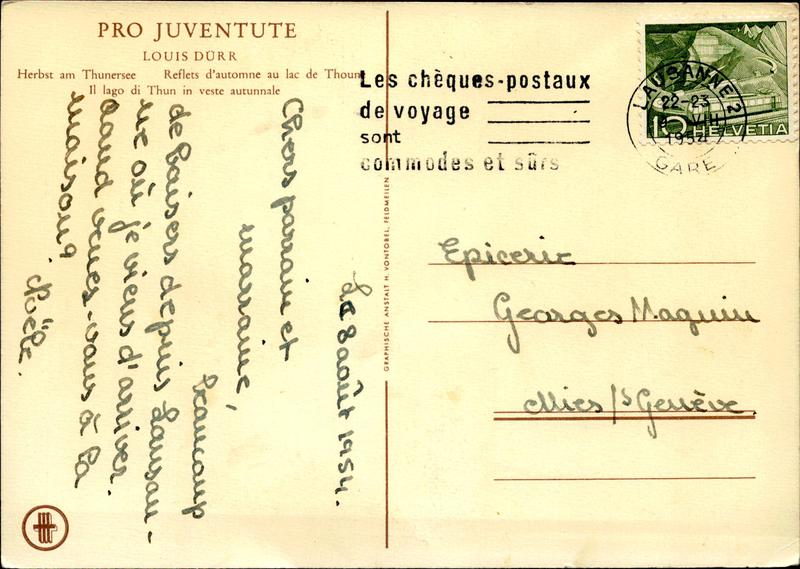 PRO JUVENTUTE
LOUIS DÜRR
Herbst am Thunersee Reflets d'automne au lac de Thoune
Il lago di Thun in veste autunnale
Les chèques-postaux
de voyage
sont
commodes et sûrs
LAUSANNE 2
22-23
VIII
1954
GARE
10 HELVETIA
Le 8 août 1954.
Chers parrain et
marraine,
beaucoup
de baisers depuis Lausan-
ne où je viens d'arriver.
Quand venez-vous à la
maison?
GRAPHISCHE ANSTALT H. VONTOBEL, FELDMEILEN
Epicerie
Georges Maquin
Mies /s Genève.